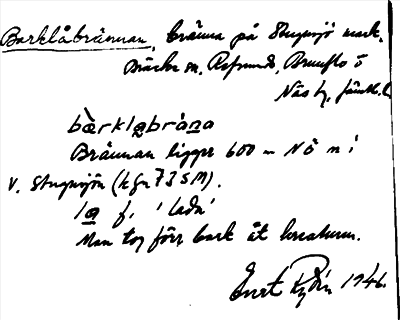 Barklåbrännan, bränna på Stugusjö mark,
Bräcke sn, Refsunds, Brunflo o
Näs tg, Jämtl. l.
bàrklabrána
Brännan ligger 600 m NÖ n i
V. Stugusjön (kfn 73 SM).
la f, 'lada'
Man tog förr bark åt kreaturen.
Evert Rydén 1946.